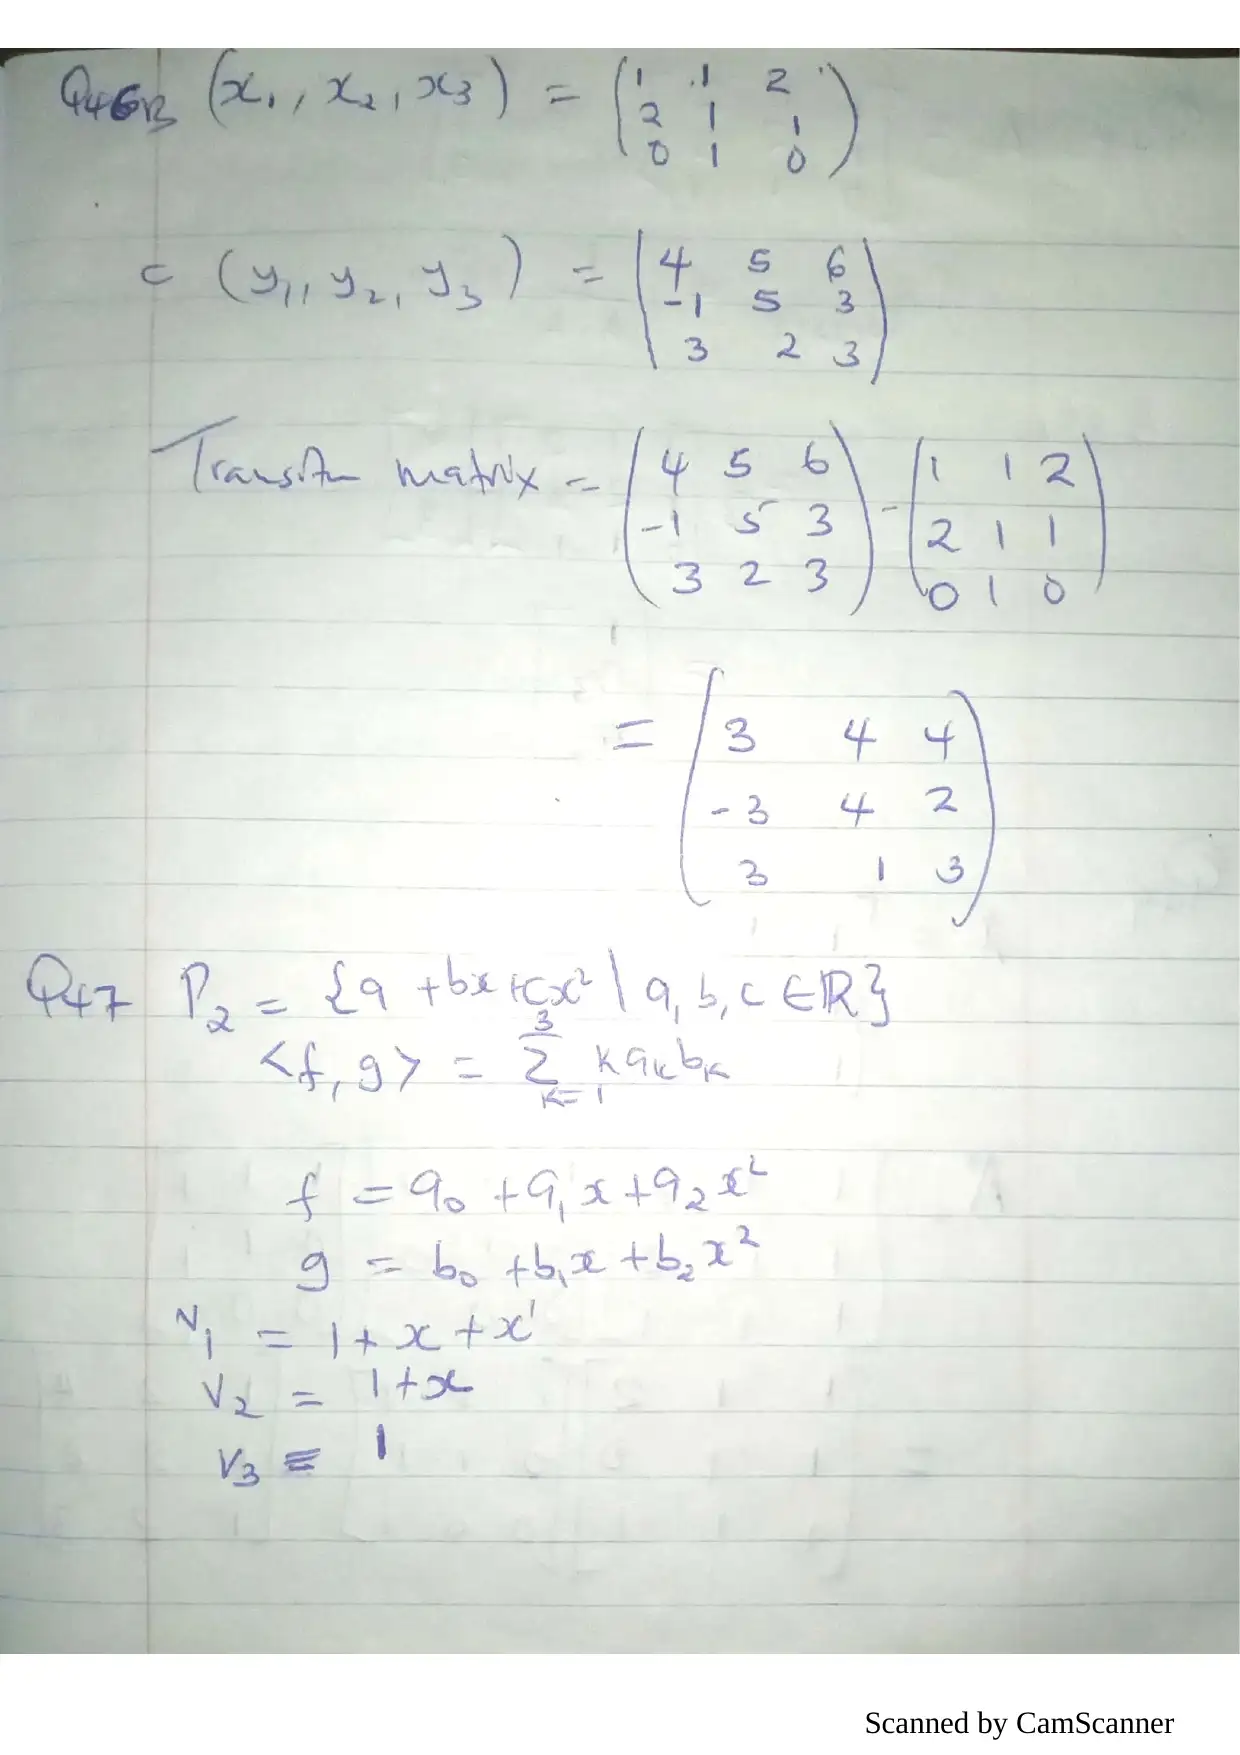 Q46B (x1, x2, x3) = (1 1 2
2 1 1
0 1 0)
C (y1, y2, y3) = (4 5 6
-1 5 3
3 2 3)
Transitn matrix = (4 5 6 -1 5 3 3 2 3) - (1 1 2 2 1 1 0 1 0)
= (3 4 4
-3 4 2
3 1 3)
Q47 P2 = {a + bx + cx² | a, b, c ∈ ℝ}
<f, g> = Σ_{k=1}^{3} k ak bk
f = a0 + a1 x + a2 x²
g = b0 + b1 x + b2 x²
V1 = 1 + x + x'
V2 = 1 + x
V3 = 1
Scanned by CamScanner